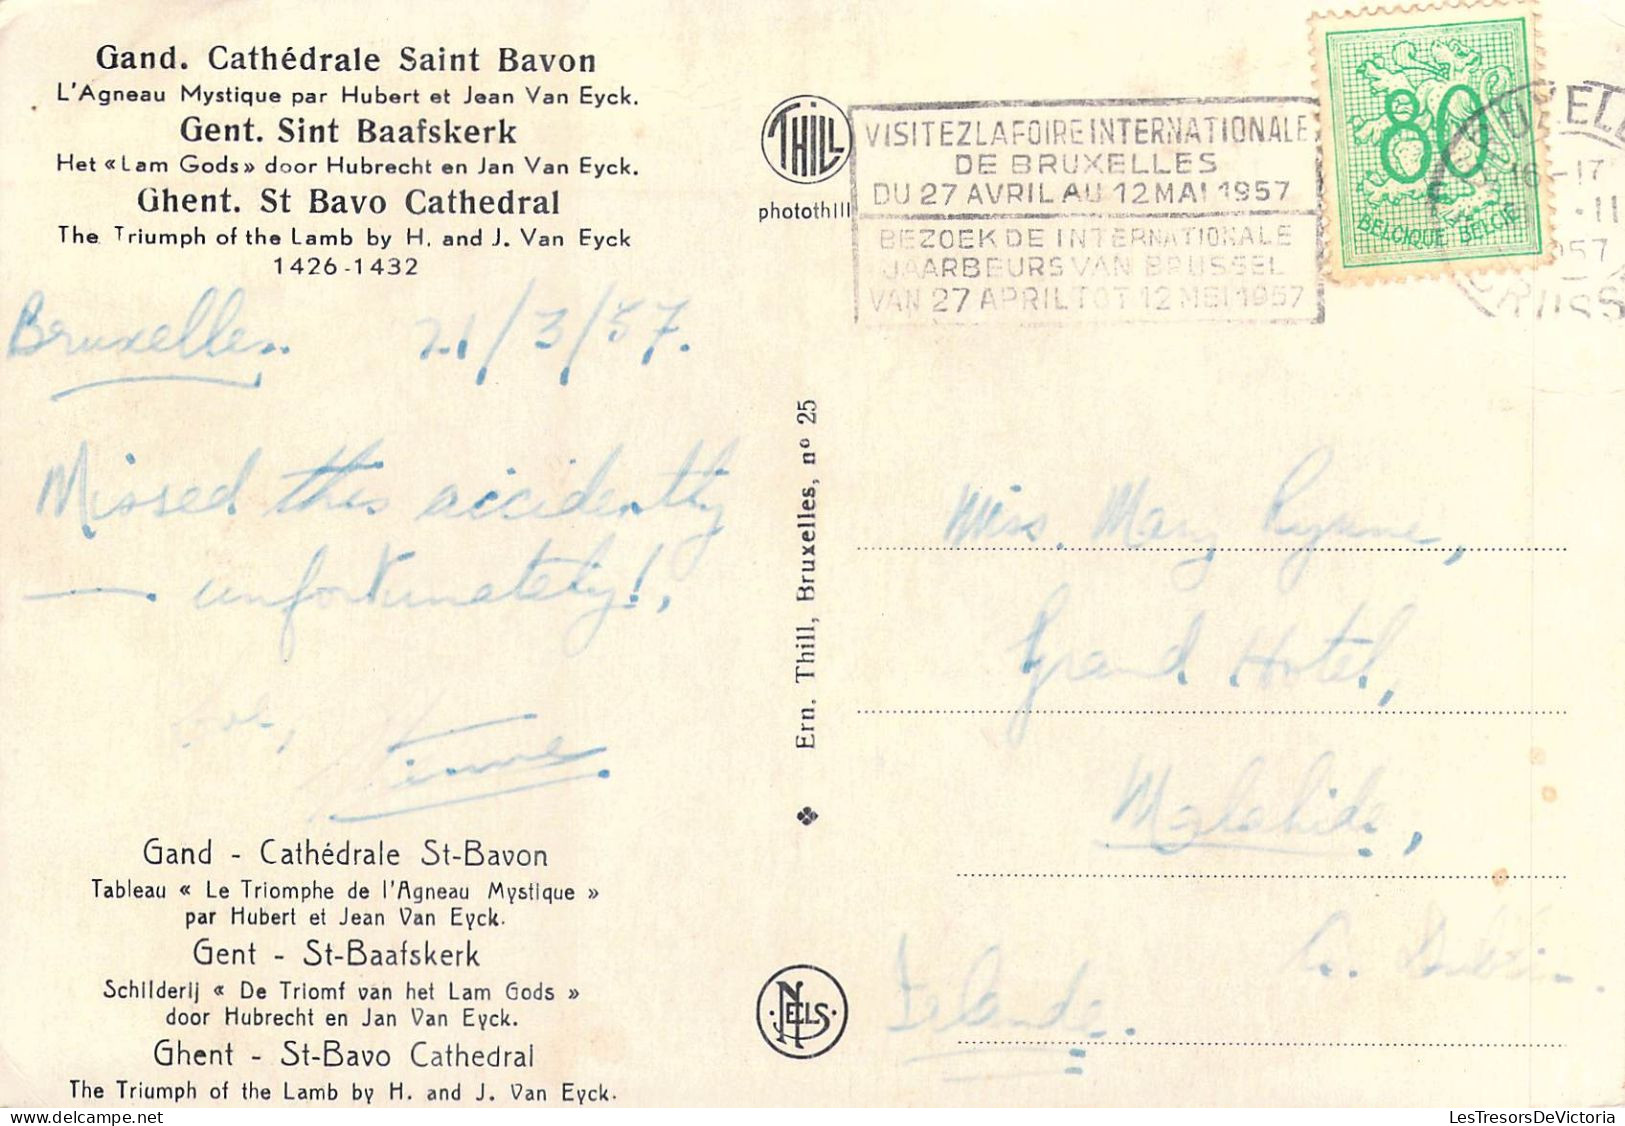 Gand. Cathédrale Saint Bavon
L'Agneau Mystique par Hubert et Jean Van Eyck.
Gent. Sint Baafskerk
Het «Lam Gods» door Hubrecht en Jan Van Eyck.
Ghent. St Bavo Cathedral
The Triumph of the Lamb by H. and J. Van Eyck
1426-1432
Bruxelles. 21/3/57.
Missed this accidently
— unfortunately!,
Love,
Gand - Cathédrale St-Bavon
Tableau « Le Triomphe de l'Agneau Mystique »
par Hubert et Jean Van Eyck.
Gent - St-Baafskerk
Schilderij « De Triomf van het Lam Gods »
door Hubrecht en Jan Van Eyck.
Ghent - St-Bavo Cathedral
The Triumph of the Lamb by H. and J. Van Eyck.
THILL
photothill
Ern. Thill, Bruxelles, nº 25
NELS
VISITEZ LA FOIRE INTERNATIONALE
DE BRUXELLES
DU 27 AVRIL AU 12 MAI 1957
BEZOEK DE INTERNATIONALE
JAARBEURS VAN BRUSSEL
VAN 27 APRIL TOT 12 MEI 1957
80
BELGIQUE BELGIË
16-17
Miss. Mary
Grand Hotel,
Malahide,
Co. Dublin.
Irlande.
LesTresorsDeVictoria